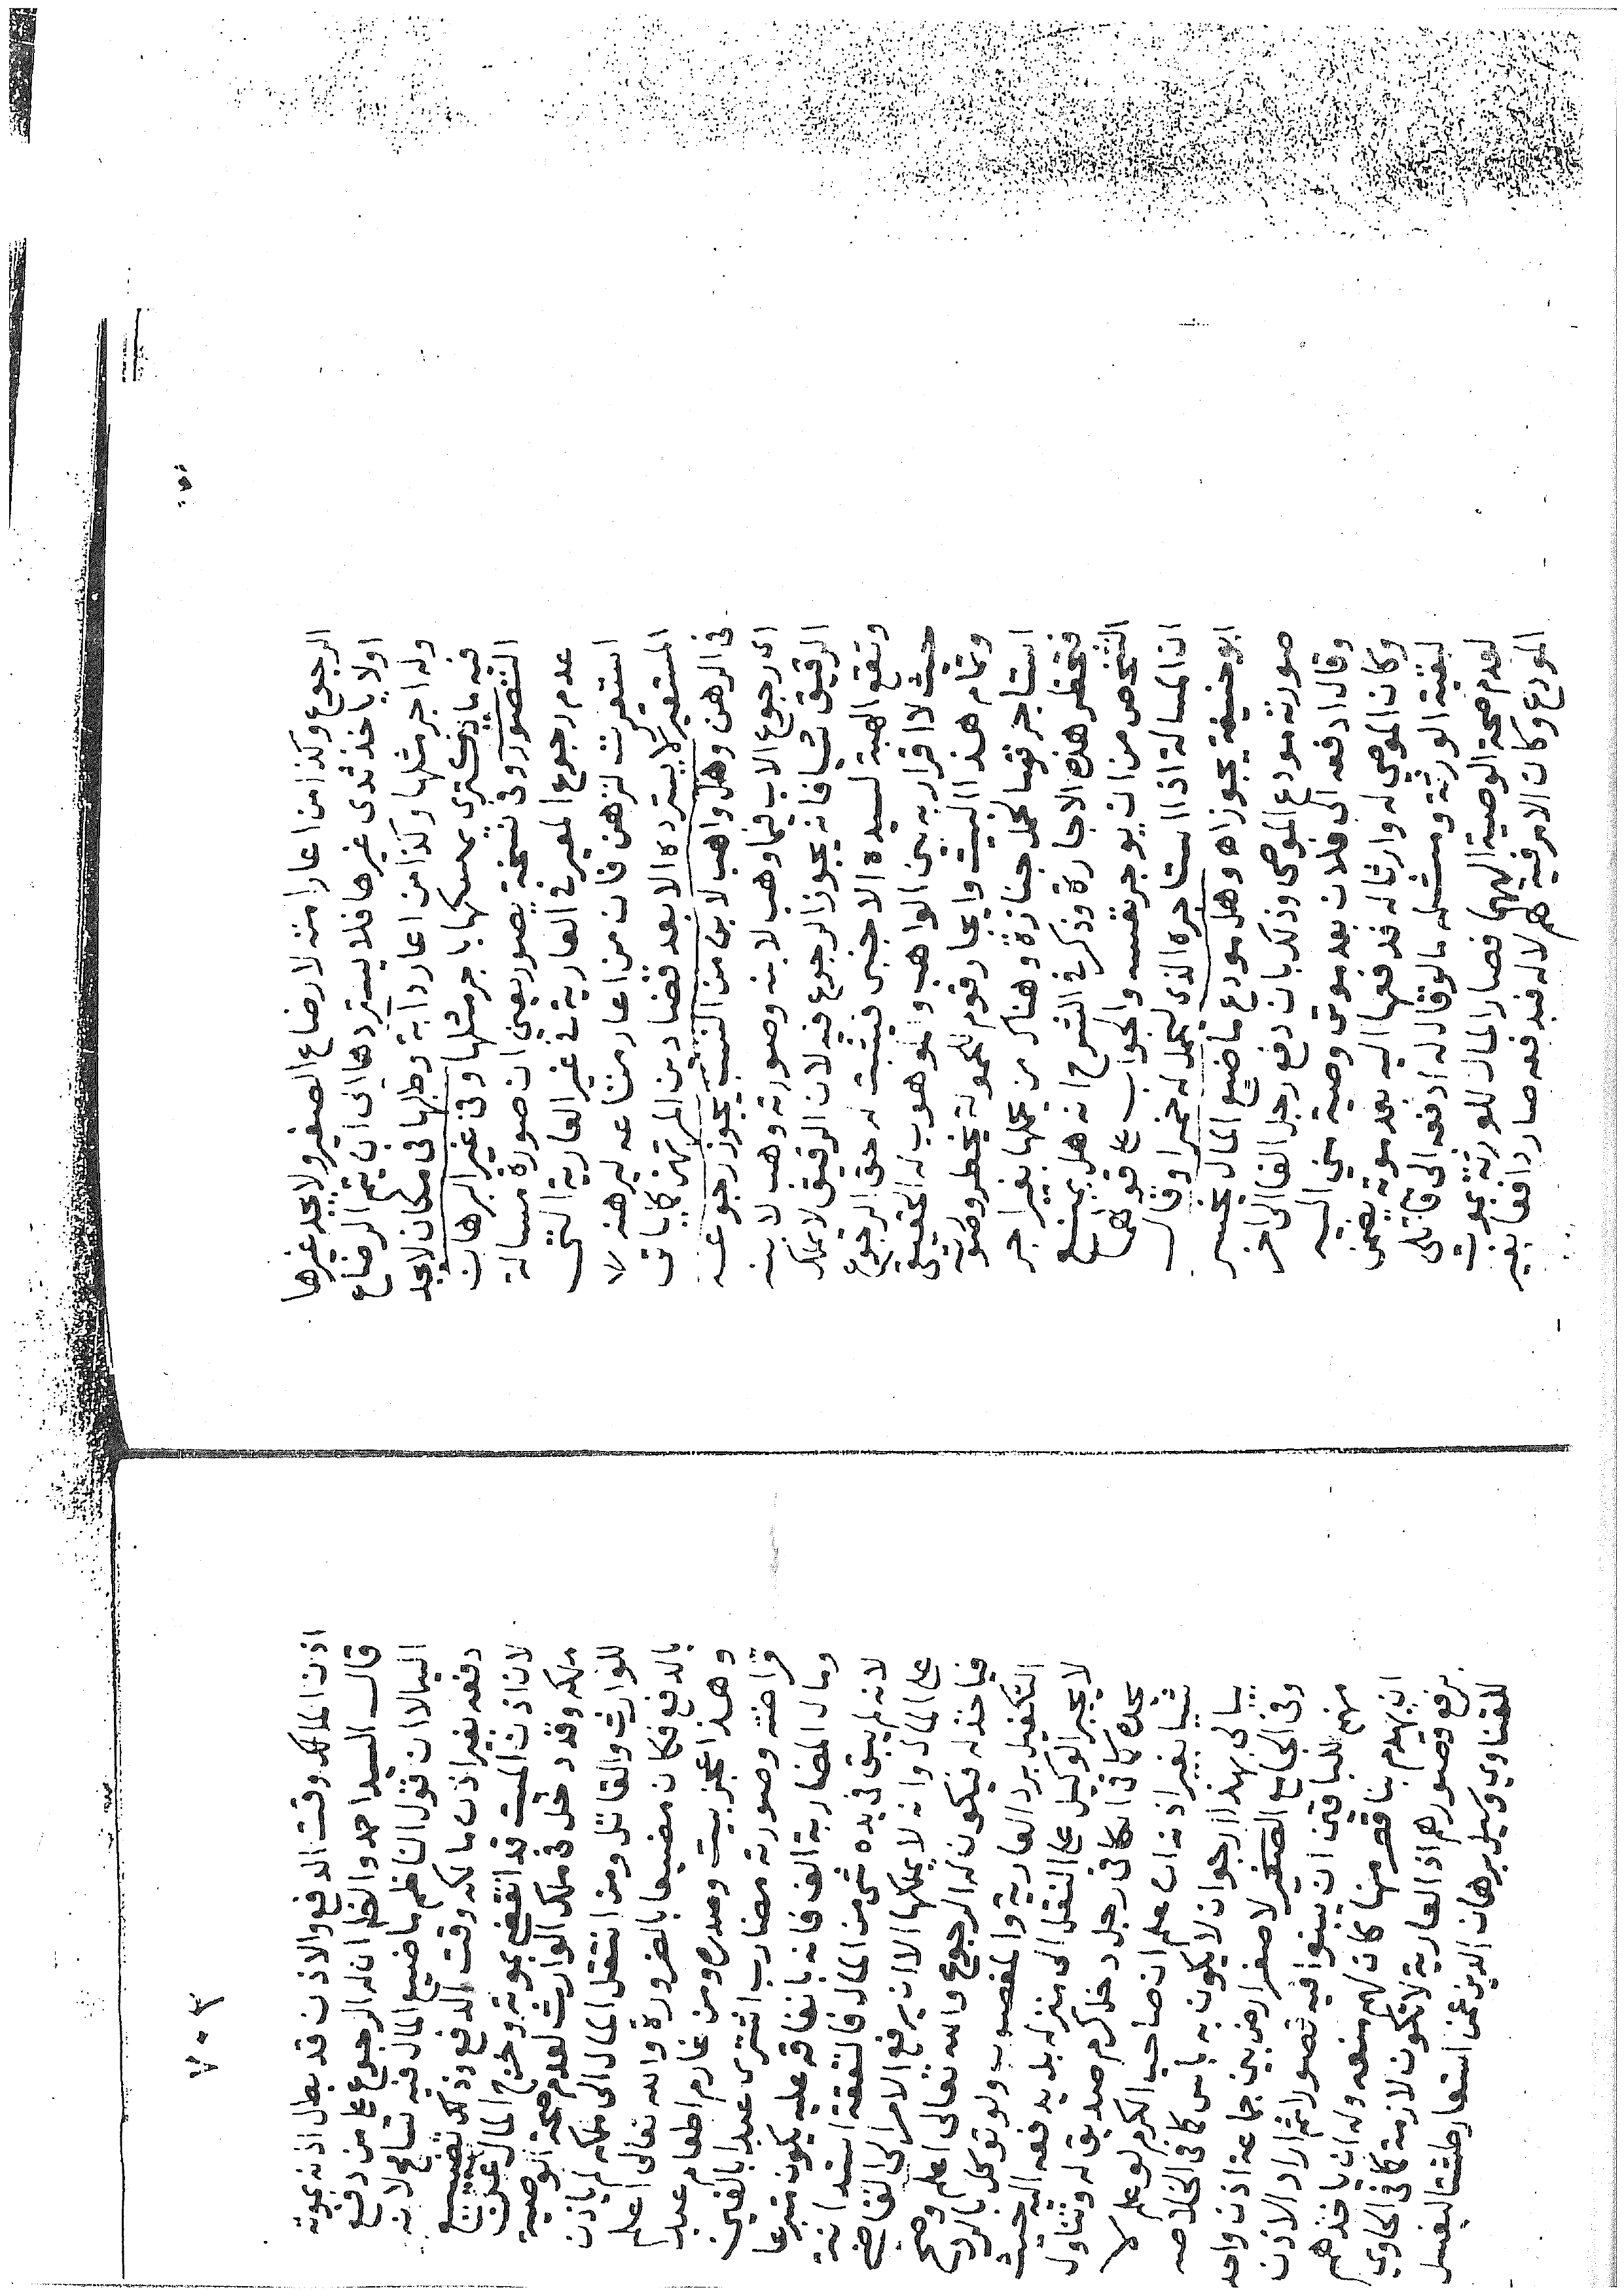 الرجوع وكذا من اعار امته لارضاع الصغير ولا يجد غيرها
اولا ياخذ ثدي غيرها فلا يستردها الى ان يتم الرضاع
وله اجر مثلها وكذا من اعار دابة وطلبها في مكان لا يجد
فيه ما يكتري يمسكها باجر مثلها وفي غير الرهان
التصور وفي نسخة بصور يعني ان صورة مسالة
عدم رجوع المعير في العارية في غير العارية التي
استعيرت لترهن فان من اعار متاعه ليرهنه لا
المستعير لا يسترده الا بعد قضا دين المرتهن كما ياتي
في الرهن وهل واهب لابن من النسب يجوز رجوعه
اى رجوع الاب فيما وهب لابنه وصورته وهب لابنه
الرقيق شيا فانه يجوز الرجوع فيه لان الرقيق لا يملك
وتقع الهبة لسيده الاجنبي فيثبت له حق الرجوع
حيث لا قرابة بين الواهب والموهوب له الحقيقي
وتمام هذا البيت وايجار قوم للحمولة يخطر وصورته
استاجر قوما لحمل جنازة وهناك من يحملها بغير اجر
فتحظر هذه الاجارة وذكر في الشرح انه هل يمنع
الشخص من ان يوجر نفسه والجواب على قولهما
ان المسالة اذا استاجره الذمي ليحمل له خمرا وقال
ابو حنيفة يجوز اه وهل مودع ما ضيع المال يخسر
صورته مودع الموصي وذلك بان دفع رجل الفا الى اخر
وقال ادفعه الى فلان بعد موتي وصية مني اليه
وكان الموصى له وارثا له فدفعها اليه بعد موته يضمن
لبقية الورثة ومثله ما لو قال له ادفعه الى قاتلي
لعدم صحة الوصية اليهما فصار المال للورثة بموت
المودع وكان الامر فيه لهم لا له فبدفعه صار دافعا بغير
٧٠٣
اذن المالك وقت الدفع والاذن قد بطل اذنه بموته
قال السيد احمد والظ ان له الرجوع على من دفع
اليه الا ان قول الناظم ما ضيع المال فيه تسامح لانه
دفعه بغير اذن مالكه وقت الدفع وذلك تضييع
لان اذن الميت قد انقطع بموته وخرج المال عن
ملكه وقد دخل في ملك الوارث لعدم صحة الوصية
للوارث والقاتل ومن انتقل المال الى ملكه لم ياذن
بالدفع فكان مضيعا بالضرورة والله تعالى اعلم
وهذا عجز بيت وصدره ومن غارم اطعام عبد
قراضه وصورته مضارب اشترى عبدا بالفين
ومال المضاربة الف فانه بانفاقه عليه يكون متبرعا
لانه لم يبق في يده شي من المال فالنفقة استدانة
على المال وانه لا يملكها الا ان يرفع الامر الى القاضي
فياخذ له فيكون له الرجوع والله تعالى اعلم وصح
التكفيل برد العارية والمغصوب ولو توكل بالرد
لا يجبر الوكيل على النقل الى منزله بل يدفعه اليه حيث
يجده كما في الكافي رجل دخل كرم صديق له وتناول
شيئا بغير اذنه ان علم ان صاحب الكرم لو علم لا
يبالي بهذا ارجو ان لا يكون به باس كما في الخلاصه
وفي الجامع الصغير لاصغر ارض بين جماعة اذن واحد
منهم للباقين ان يبنوا فيه قصورا ثم اراد الاذن
ان يهدم بنا قصر منها كان لهم منعه وله ان ياخذهم
برفع قصورهم اذ العارية لا تكون لازمة كما في الحاوي
للفتاوي وسيل برهان الدين عمن استعار طشتا ليغسل